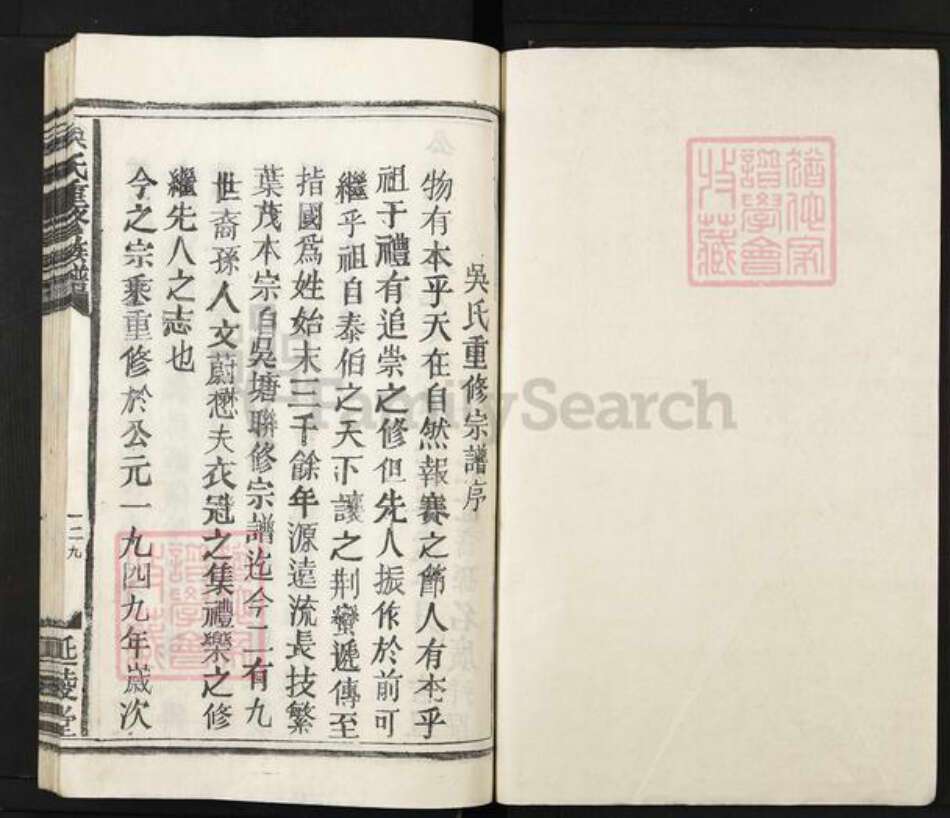 吳氏重修宗譜序
物有本乎天在自然報賽之節人有本乎
祖于禮有追崇之修但先人振作於前可
繼乎祖自泰伯之天下讓之荆蠻遞傳至
指國爲姓始末三千餘年源遠流長技繁
葉茂本宗自吳塘聯修宗譜迄今二有九
世裔孫人文蔚愗夫衣冠之集禮樂之修
繼先人之志也
今之宗乘重修於公元一九四九年嵗次
吳氏重修族譜
一二九
延陵堂
FamilySearch
譜學會
收藏